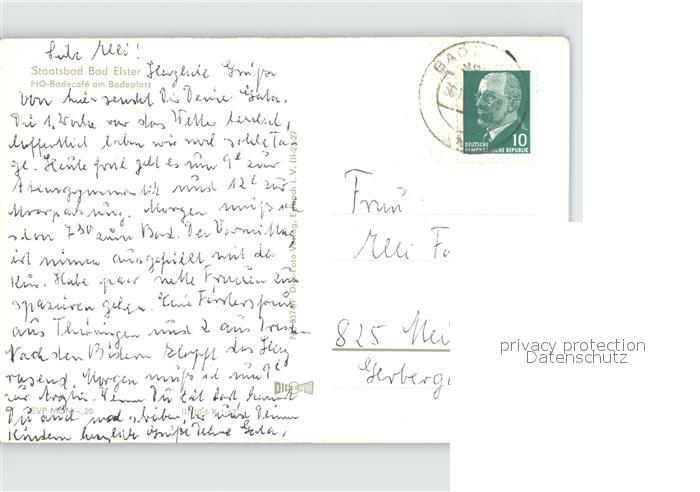 Liebe Elli!
Staatsbad Bad Elster Herzliche Grüße
HO-Badecafé am Badeplatz
von hier sendet Dir Deine
Die 1. Woche war das Wetter herrlich,
hoffentlich haben wir noch solche Ta
ge. Heute früh geht es um 9h zur
Atemgymnastik und 12h zur
Moorpackung. Morgen muß ich
schon 7 30 zum Bad. Der Vormittag
ist immer ausgefüllt mit der
Kur. Habe paar nette Frauen zum
spazieren gehen. Eine Försterfrau
aus Thüringen und 2 aus Dresden
Nach den Bädern klopft das Herz
rasend. Morgen muß ich um 9h
zur Ärztin. Wenn Du Zeit hast kannst
Du auch mal schreiben. Dir und Deinen
Kindern herzliche Grüße Deine
EVP MDN -,20
BAD
DEUTSCHE
DEMOKRATISCHE REPUBLIK
10
Frau
Elli
825 Mei
Gerberga
privacy protection
Datenschutz